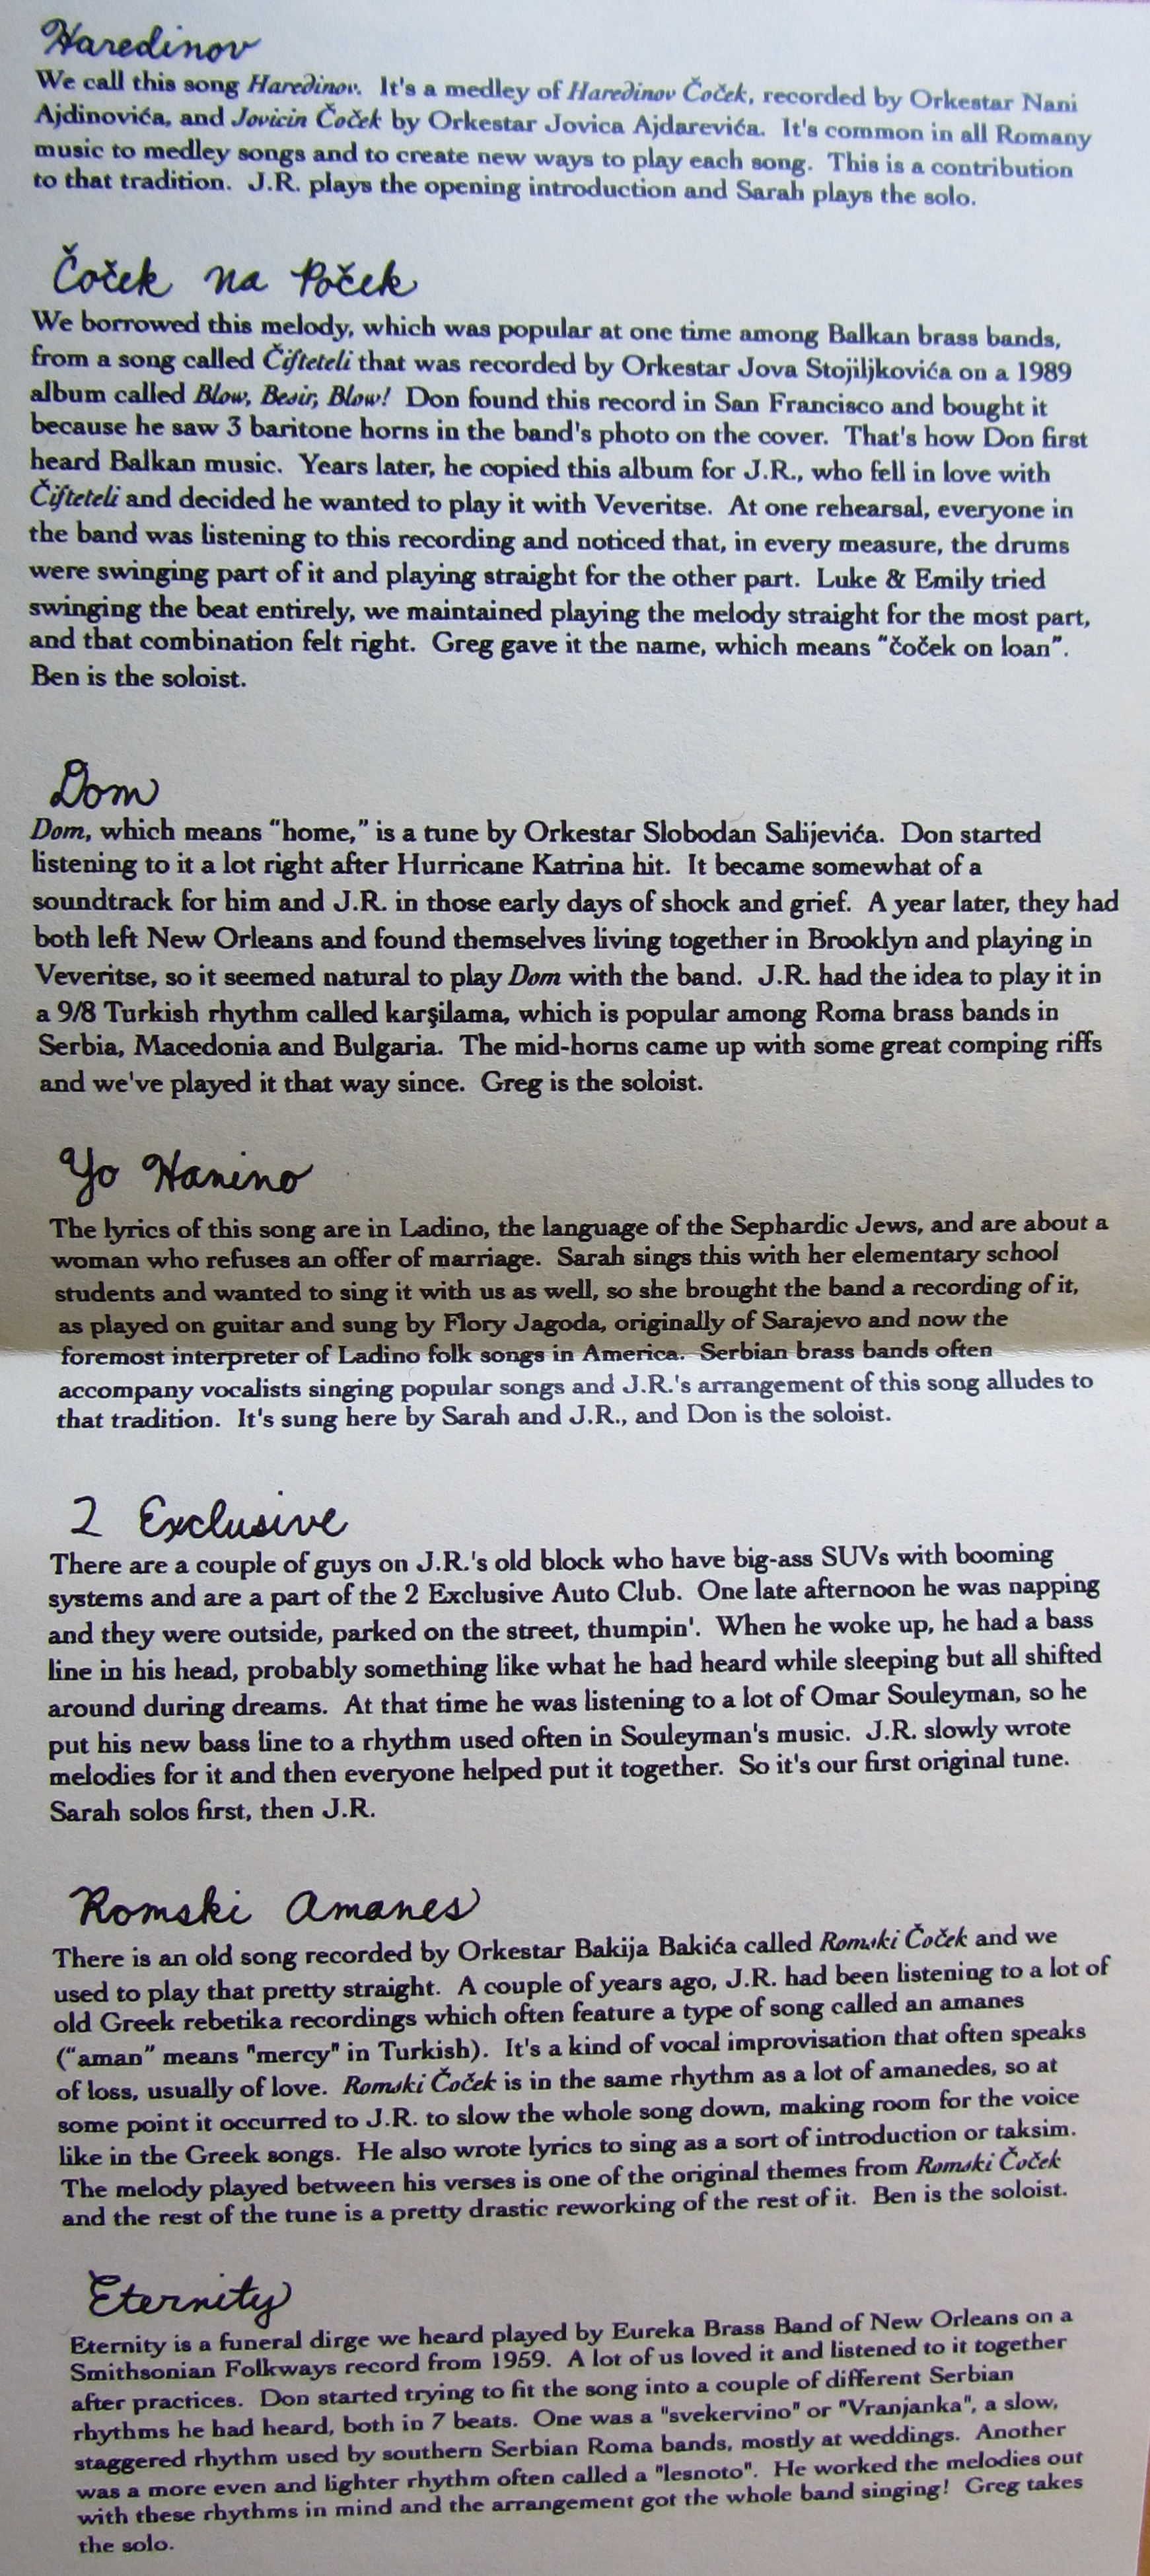 Haredinov
We call this song Haredinov. It's a medley of Haredinov Čoček, recorded by Orkestar Nani
Ajdinovića, and Jovicin Čoček by Orkestar Jovica Ajdarevića. It's common in all Romany
music to medley songs and to create new ways to play each song. This is a contribution
to that tradition. J.R. plays the opening introduction and Sarah plays the solo.
Čoček na Poček
We borrowed this melody, which was popular at one time among Balkan brass bands,
from a song called Čifteteli that was recorded by Orkestar Jova Stojiljkovića on a 1989
album called Blow, Besir, Blow! Don found this record in San Francisco and bought it
because he saw 3 baritone horns in the band's photo on the cover. That's how Don first
heard Balkan music. Years later, he copied this album for J.R., who fell in love with
Čifteteli and decided he wanted to play it with Veveritse. At one rehearsal, everyone in
the band was listening to this recording and noticed that, in every measure, the drums
were swinging part of it and playing straight for the other part. Luke & Emily tried
swinging the beat entirely, we maintained playing the melody straight for the most part,
and that combination felt right. Greg gave it the name, which means “čoček on loan”.
Ben is the soloist.
Dom
Dom, which means “home,” is a tune by Orkestar Slobodan Salijevića. Don started
listening to it a lot right after Hurricane Katrina hit. It became somewhat of a
soundtrack for him and J.R. in those early days of shock and grief. A year later, they had
both left New Orleans and found themselves living together in Brooklyn and playing in
Veveritse, so it seemed natural to play Dom with the band. J.R. had the idea to play it in
a 9/8 Turkish rhythm called karşilama, which is popular among Roma brass bands in
Serbia, Macedonia and Bulgaria. The mid-horns came up with some great comping riffs
and we've played it that way since. Greg is the soloist.
Yo Hanino
The lyrics of this song are in Ladino, the language of the Sephardic Jews, and are about a
woman who refuses an offer of marriage. Sarah sings this with her elementary school
students and wanted to sing it with us as well, so she brought the band a recording of it,
as played on guitar and sung by Flory Jagoda, originally of Sarajevo and now the
foremost interpreter of Ladino folk songs in America. Serbian brass bands often
accompany vocalists singing popular songs and J.R.'s arrangement of this song alludes to
that tradition. It's sung here by Sarah and J.R., and Don is the soloist.
2 Exclusive
There are a couple of guys on J.R.'s old block who have big-ass SUVs with booming
systems and are a part of the 2 Exclusive Auto Club. One late afternoon he was napping
and they were outside, parked on the street, thumpin'. When he woke up, he had a bass
line in his head, probably something like what he had heard while sleeping but all shifted
around during dreams. At that time he was listening to a lot of Omar Souleyman, so he
put his new bass line to a rhythm used often in Souleyman's music. J.R. slowly wrote
melodies for it and then everyone helped put it together. So it's our first original tune.
Sarah solos first, then J.R.
Romski Amanes
There is an old song recorded by Orkestar Bakija Bakića called Romski Čoček and we
used to play that pretty straight. A couple of years ago, J.R. had been listening to a lot of
old Greek rebetika recordings which often feature a type of song called an amanes
(“aman” means "mercy" in Turkish). It's a kind of vocal improvisation that often speaks
of loss, usually of love. Romski Čoček is in the same rhythm as a lot of amanedes, so at
some point it occurred to J.R. to slow the whole song down, making room for the voice
like in the Greek songs. He also wrote lyrics to sing as a sort of introduction or taksim.
The melody played between his verses is one of the original themes from Romski Čoček
and the rest of the tune is a pretty drastic reworking of the rest of it. Ben is the soloist.
Eternity
Eternity is a funeral dirge we heard played by Eureka Brass Band of New Orleans on a
Smithsonian Folkways record from 1959. A lot of us loved it and listened to it together
after practices. Don started trying to fit the song into a couple of different Serbian
rhythms he had heard, both in 7 beats. One was a "svekervino" or "Vranjanka", a slow,
staggered rhythm used by southern Serbian Roma bands, mostly at weddings. Another
was a more even and lighter rhythm often called a "lesnoto". He worked the melodies out
with these rhythms in mind and the arrangement got the whole band singing! Greg takes
the solo.